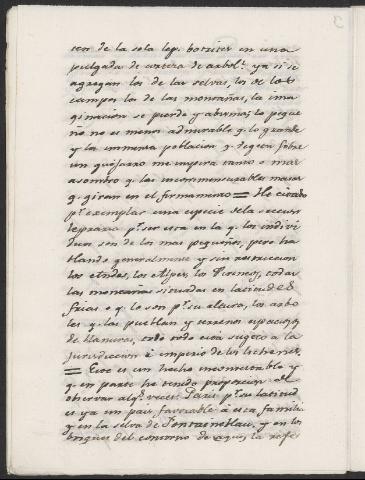 3
seis de la sola lep. botrites en una
pulgada de corteza de arbol: ya si se
agregan los de las selvas, los de los
campos los de las montañas, la ima
ginacion se pierde y abisma; lo peque
ño no es menos admirable q. lo grande
y la inmensa poblacion q. vegeta sobre
un guijarro me inspira tanto o mas
asombro q. las inconmensurables masas
q. giran en el firmamento = He citado
pr. exemplar una especie de la seccion
lepraria pr. ser esta en la q. los indivi
duos son de los mas pequeños, pero ha
blando generalmente y sin restriccion
los Andes, los Alpes, los Pirineos, todas
las montañas situadas en latitudes
frias o q. lo son pr. su altura, los arbo
les q. las pueblan y terrenos espaciosos
de llanuras, todo todo está sugeto a la
Jurisdiccion é imperio de los lichenes.
= Este es un hecho incontestable y
q. en parte he tenido proporcion de
observar algs. veces. Paris pr. su latitud
es ya un pais favorable á esta familia
y en la selva de Fontainebleau, y en los
bosques del contorno de aquella